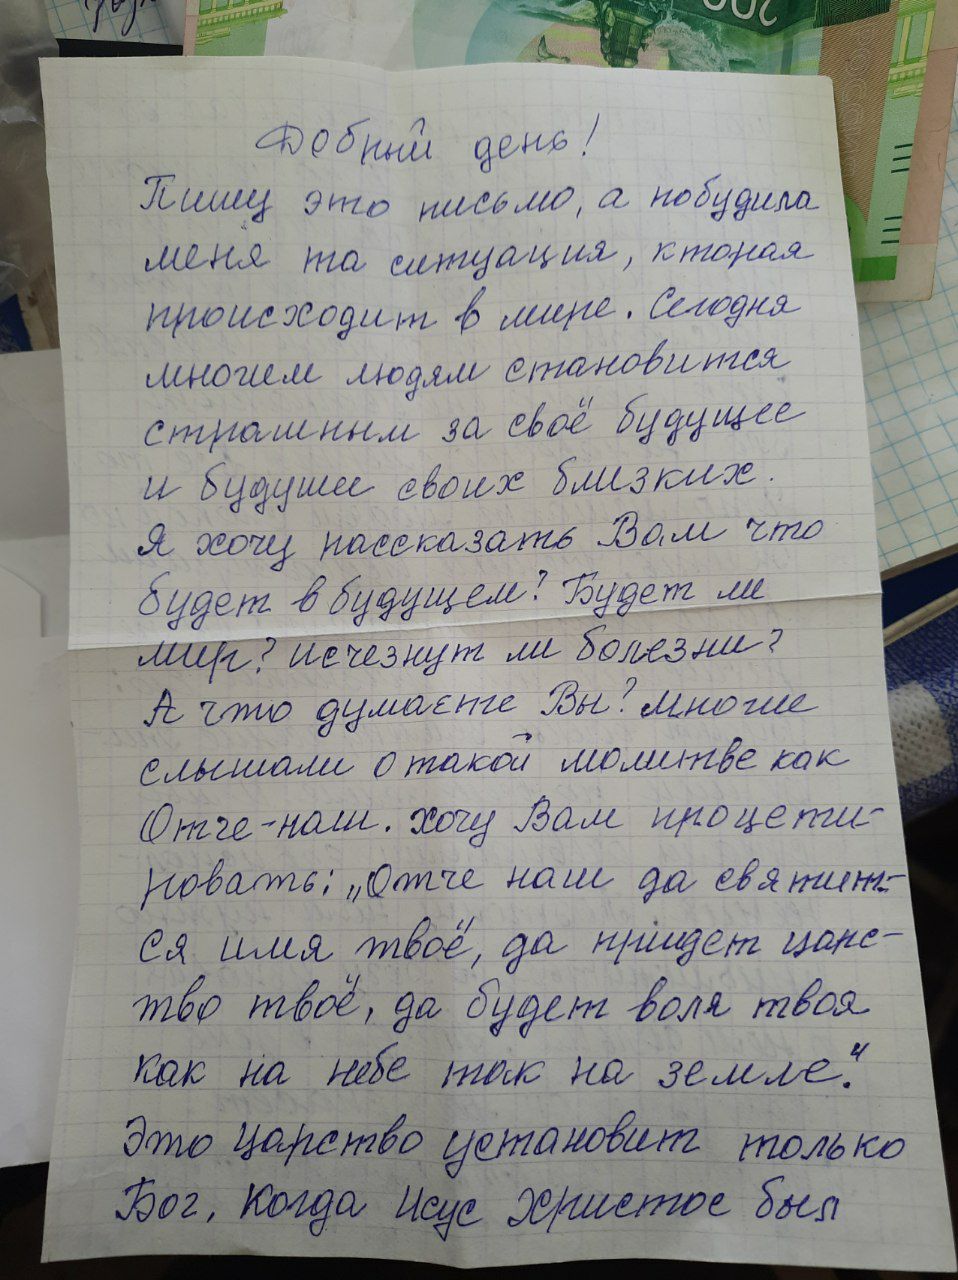 200
Добрый день!
Пишу это письмо, а побудила
меня та ситуация, кторая
происходит в мире. Сегодня
многим людям становится
страшным за своё будущее
и будуше своих близких.
Я хочу рассказать Вам что
будет в будущем? Будет ли
мир? исчезнут ли болезни?
А что думаете Вы? многие
слышали о такой молитве как
Отче-наш. хочу Вам процети-
ровать: „Отче наш да святит-
ся имя твоё, да придет царс-
тво твоё, да будет воля твоя
как на небе так на земле."
Это царство установит только
Бог, Когда Исус Христос был